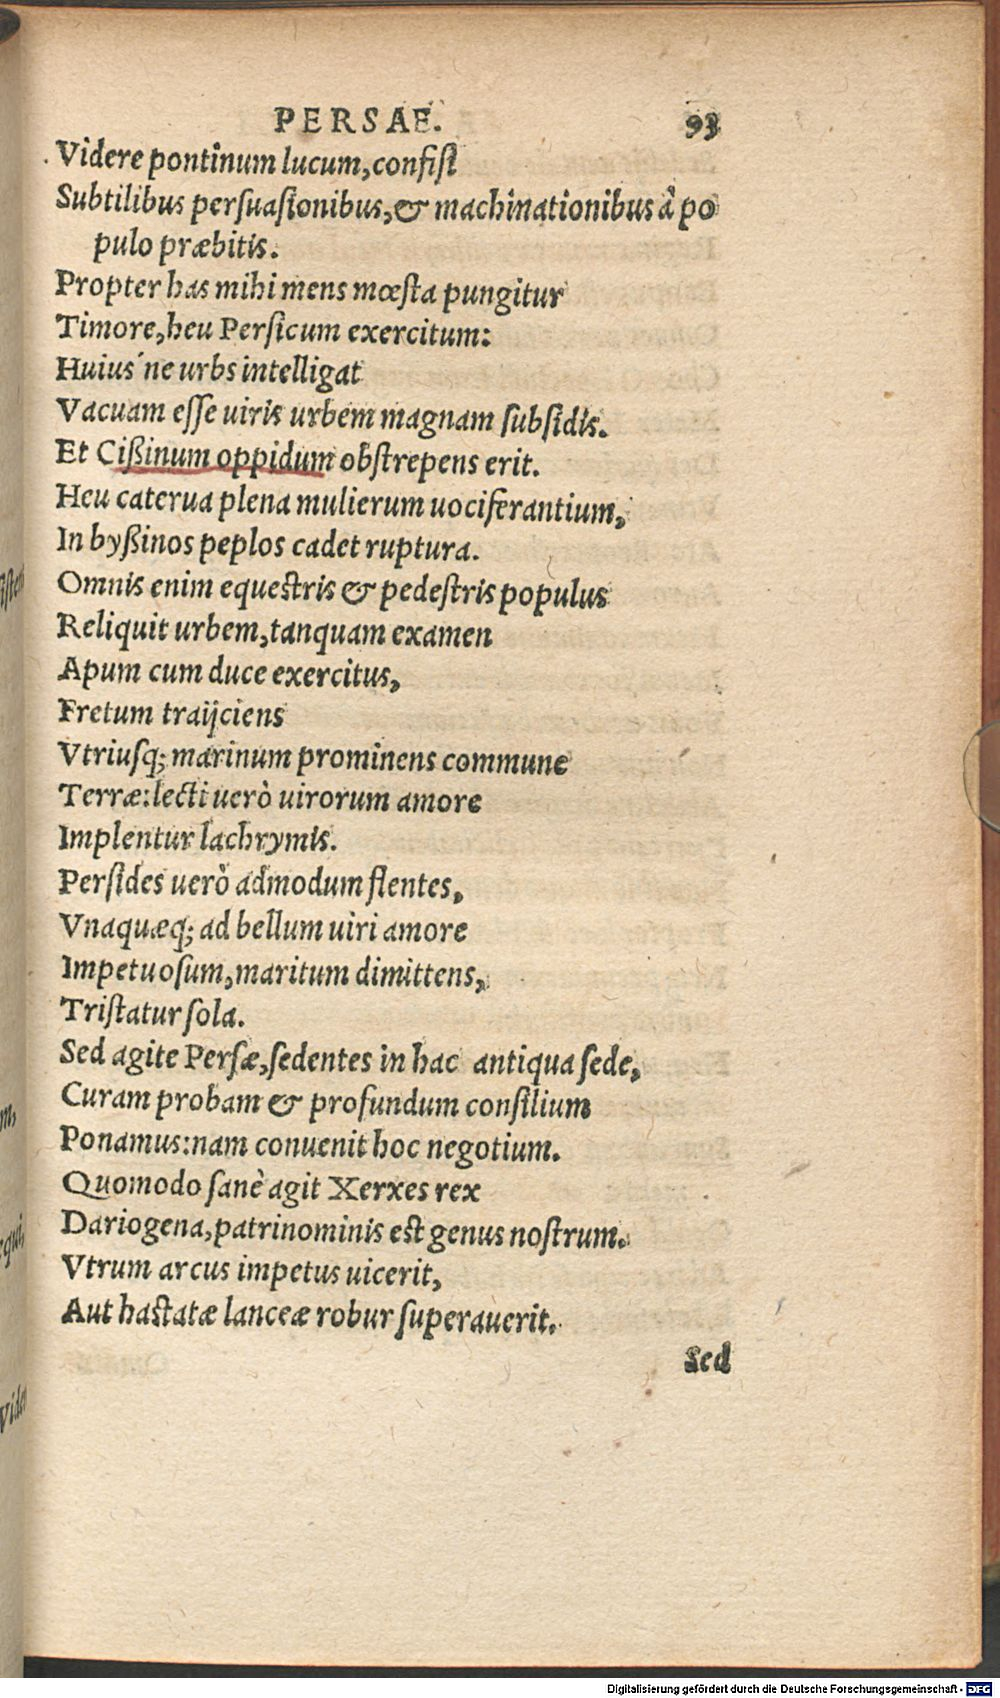 PERSAE. 93
Videre pontinum lucum, confisi
Subtilibus persuasionibus, & machinationibus à po
pulo præbitis.
Propter has mihi mens mœsta pungitur
Timore, heu Persicum exercitum:
Huius´ne urbs intelligat
Vacuam esse uiris urbem magnam subsidis.
Et Cißinum oppidum obstrepens erit.
Heu caterua plena mulierum uociferantium,
In byßinos peplos cadet ruptura.
Omnis enim equestris & pedestris populus
Reliquit urbem, tanquam examen
Apum cum duce exercitus,
Fretum traijciens
Vtriusq; marinum prominens commune
Terræ: lecti uerò uirorum amore
Implentur lachrymis.
Persides uerò admodum flentes,
Vnaquæq; ad bellum uiri amore
Impetuosum, maritum dimittens,
Tristatur sola.
Sed agite Persæ, sedentes in hac antiqua sede,
Curam probam & profundum consilium
Ponamus: nam conuenit hoc negotium.
Quomodo sanè agit Xerxes rex
Dariogena, patrinominis est genus nostrum.
Vtrum arcus impetus uicerit,
Aut hastatæ lanceæ robur superauerit.
Sed
Digitalisierung gefördert durch die Deutsche Forschungsgemeinschaft - DFG